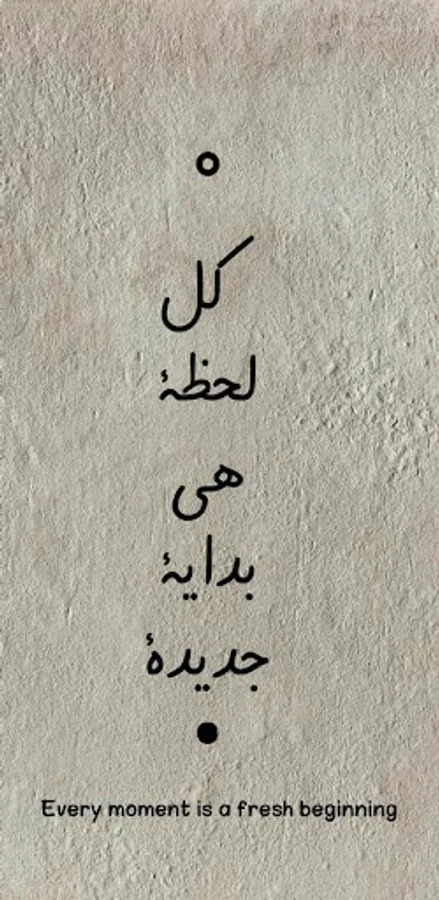 كل
لحظۂ
هی
بدایۂ
جدیدۂ
Every moment is a fresh beginning